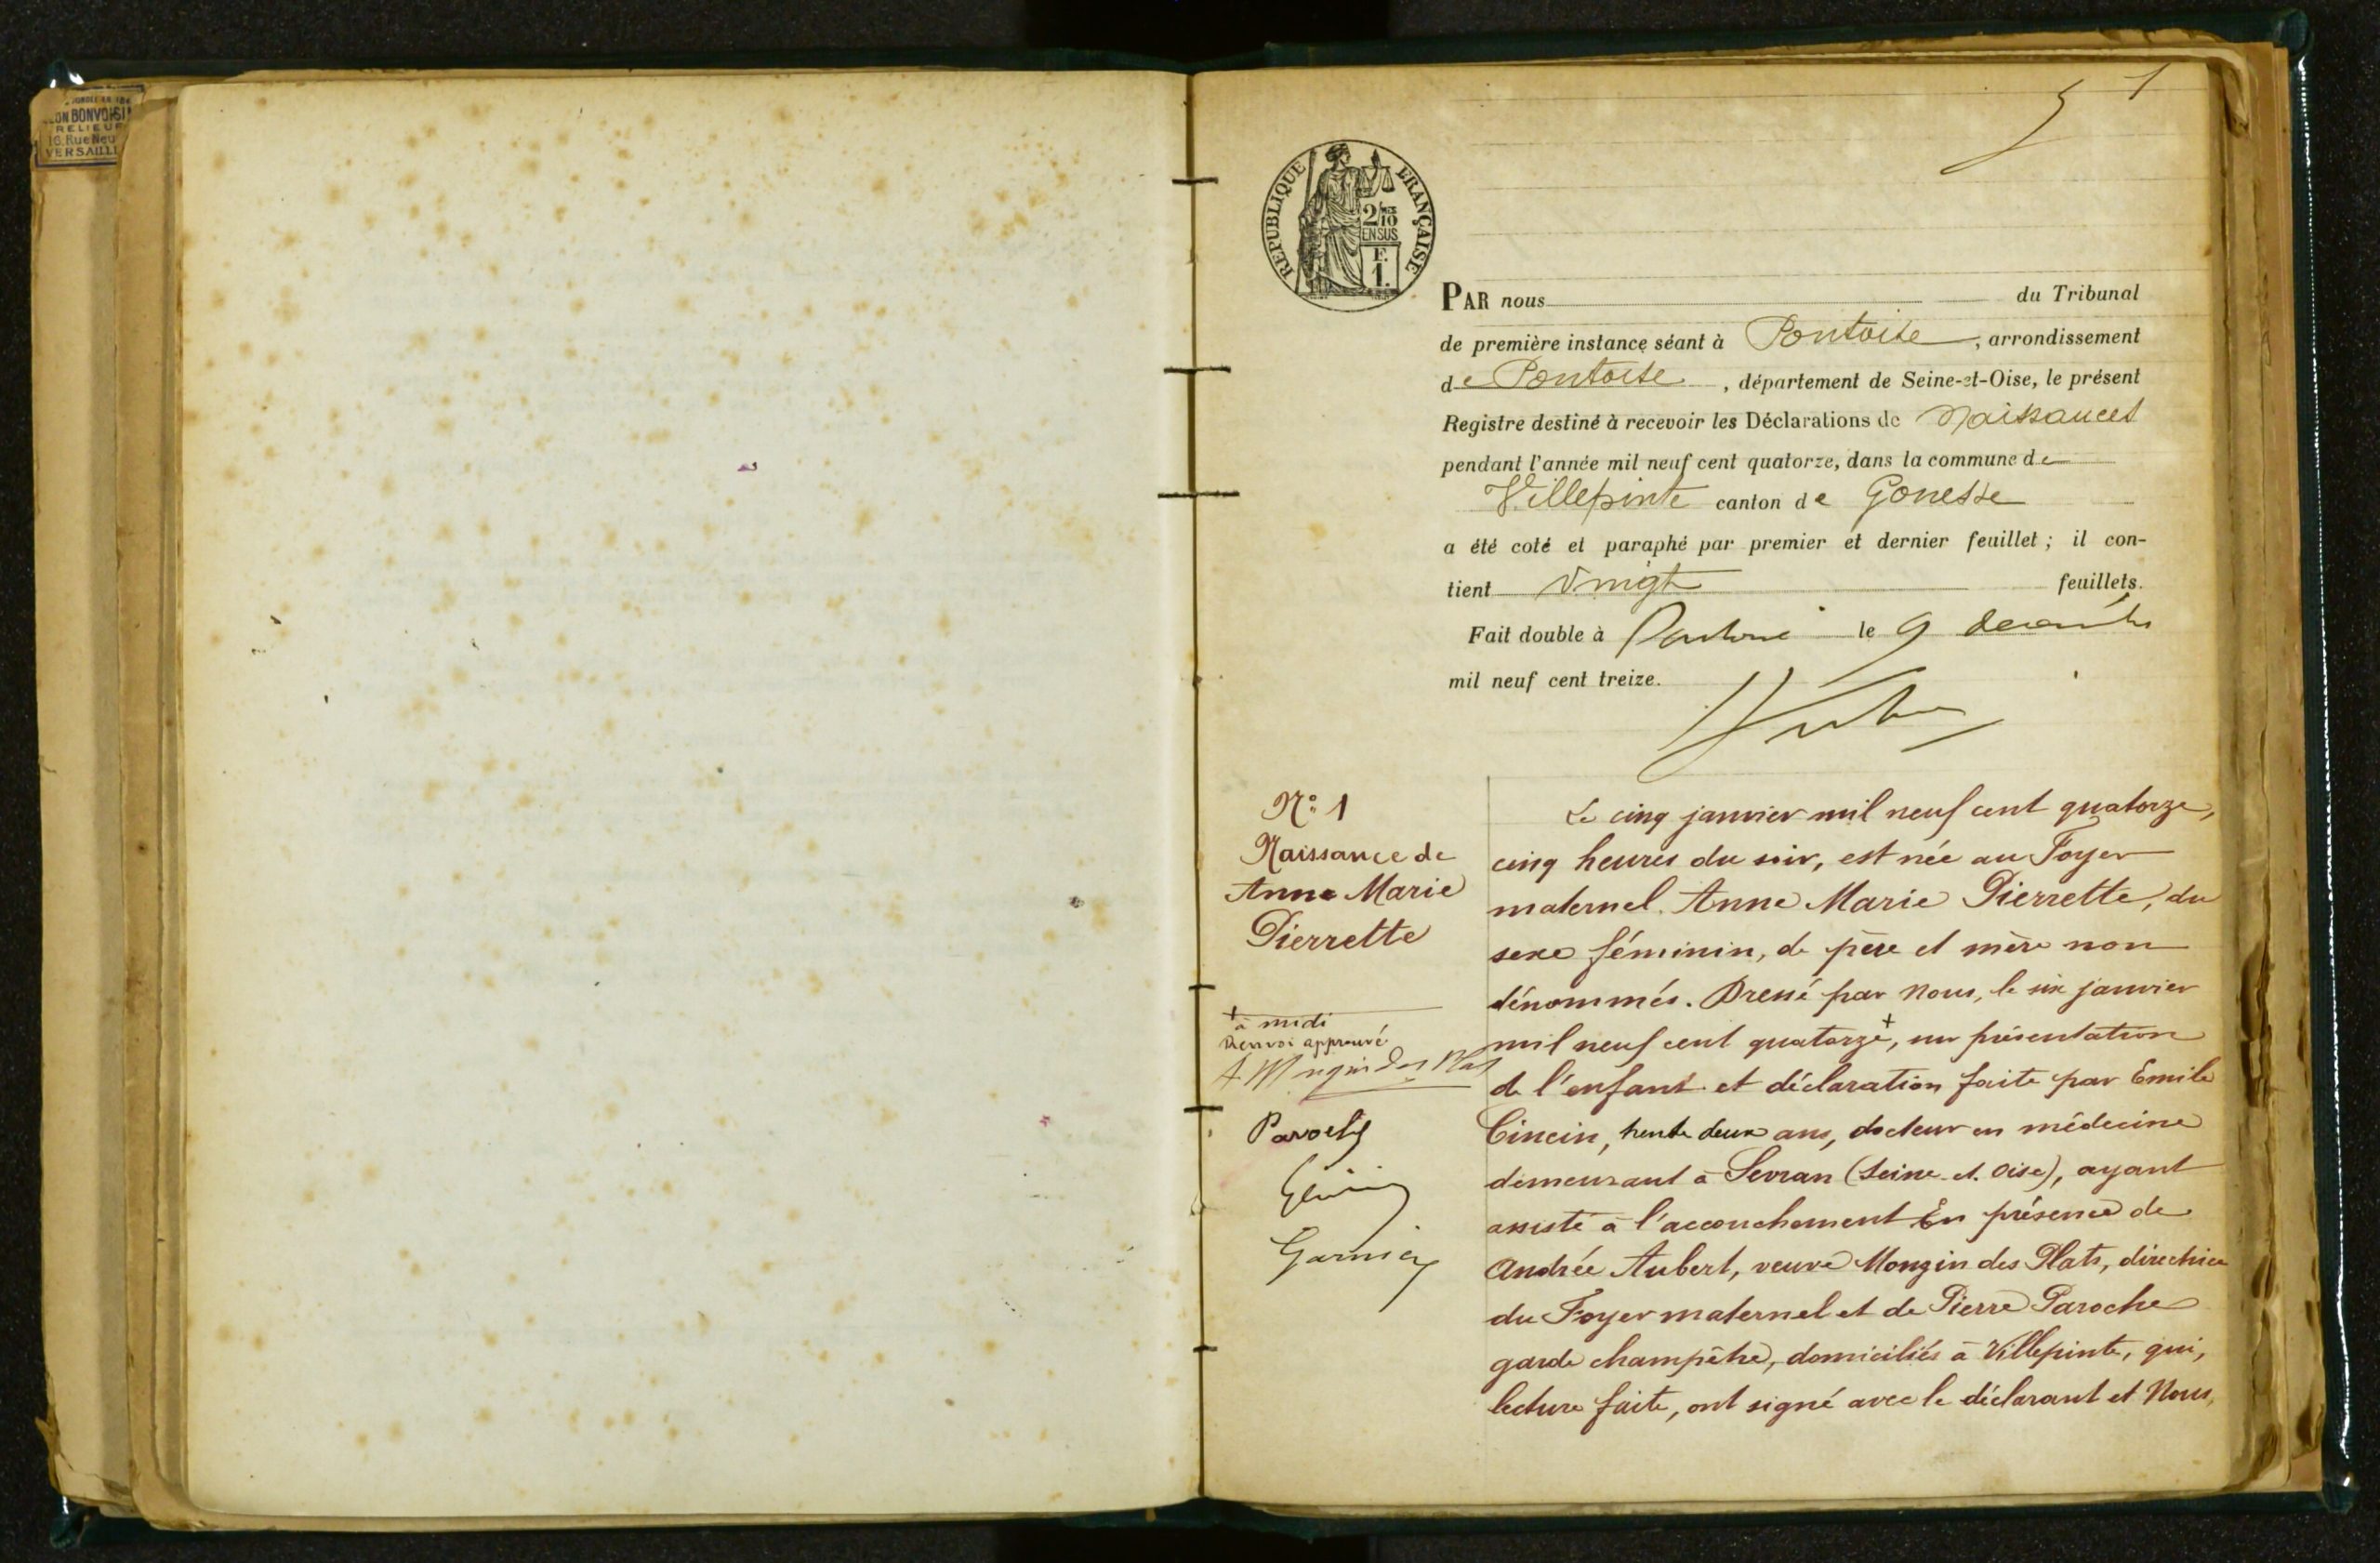 ON BONVOISIN
RELIEUR
16. Rue Neu
VERSAILL
1
RÉPUBLIQUE FRANÇAISE
2/10
EN SUS
F.
1.
PAR nous du Tribunal
de première instance séant à Pontoise, arrondissement
de Pontoise, département de Seine-et-Oise, le présent
Registre destiné à recevoir les Déclarations de Naissances
pendant l'année mil neuf cent quatorze, dans la commune de
Villepinte canton de Gonesse
a été coté et paraphé par premier et dernier feuillet ; il con-
tient vingt feuillets.
Fait double à Pontoise le 9 décembre
mil neuf cent treize.
N° 1
Naissance de
Anne Marie
Pierrette
+ à midi
Renvoi approuvé
A Mongin des Plats
Paroche
Garnier
Le cinq janvier mil neuf cent quatorze,
cinq heures du soir, est née au Foyer
maternel Anne Marie Pierrette, du
sexe féminin, de père et mère non
dénommés. Dressé par Nous, le six janvier
mil neuf cent quatorze +, sur présentation
de l'enfant et déclaration faite par Emile
Cincin, trente deux ans, docteur en médecine
demeurant à Sevran (Seine-et-Oise), ayant
assisté à l'accouchement En présence de
Andrée Aubert, veuve Mongin des Plats, directrice
du Foyer maternel et de Pierre Paroche
garde champêtre, domiciliés à Villepinte, qui,
lecture faite, ont signé avec le déclarant et Nous,